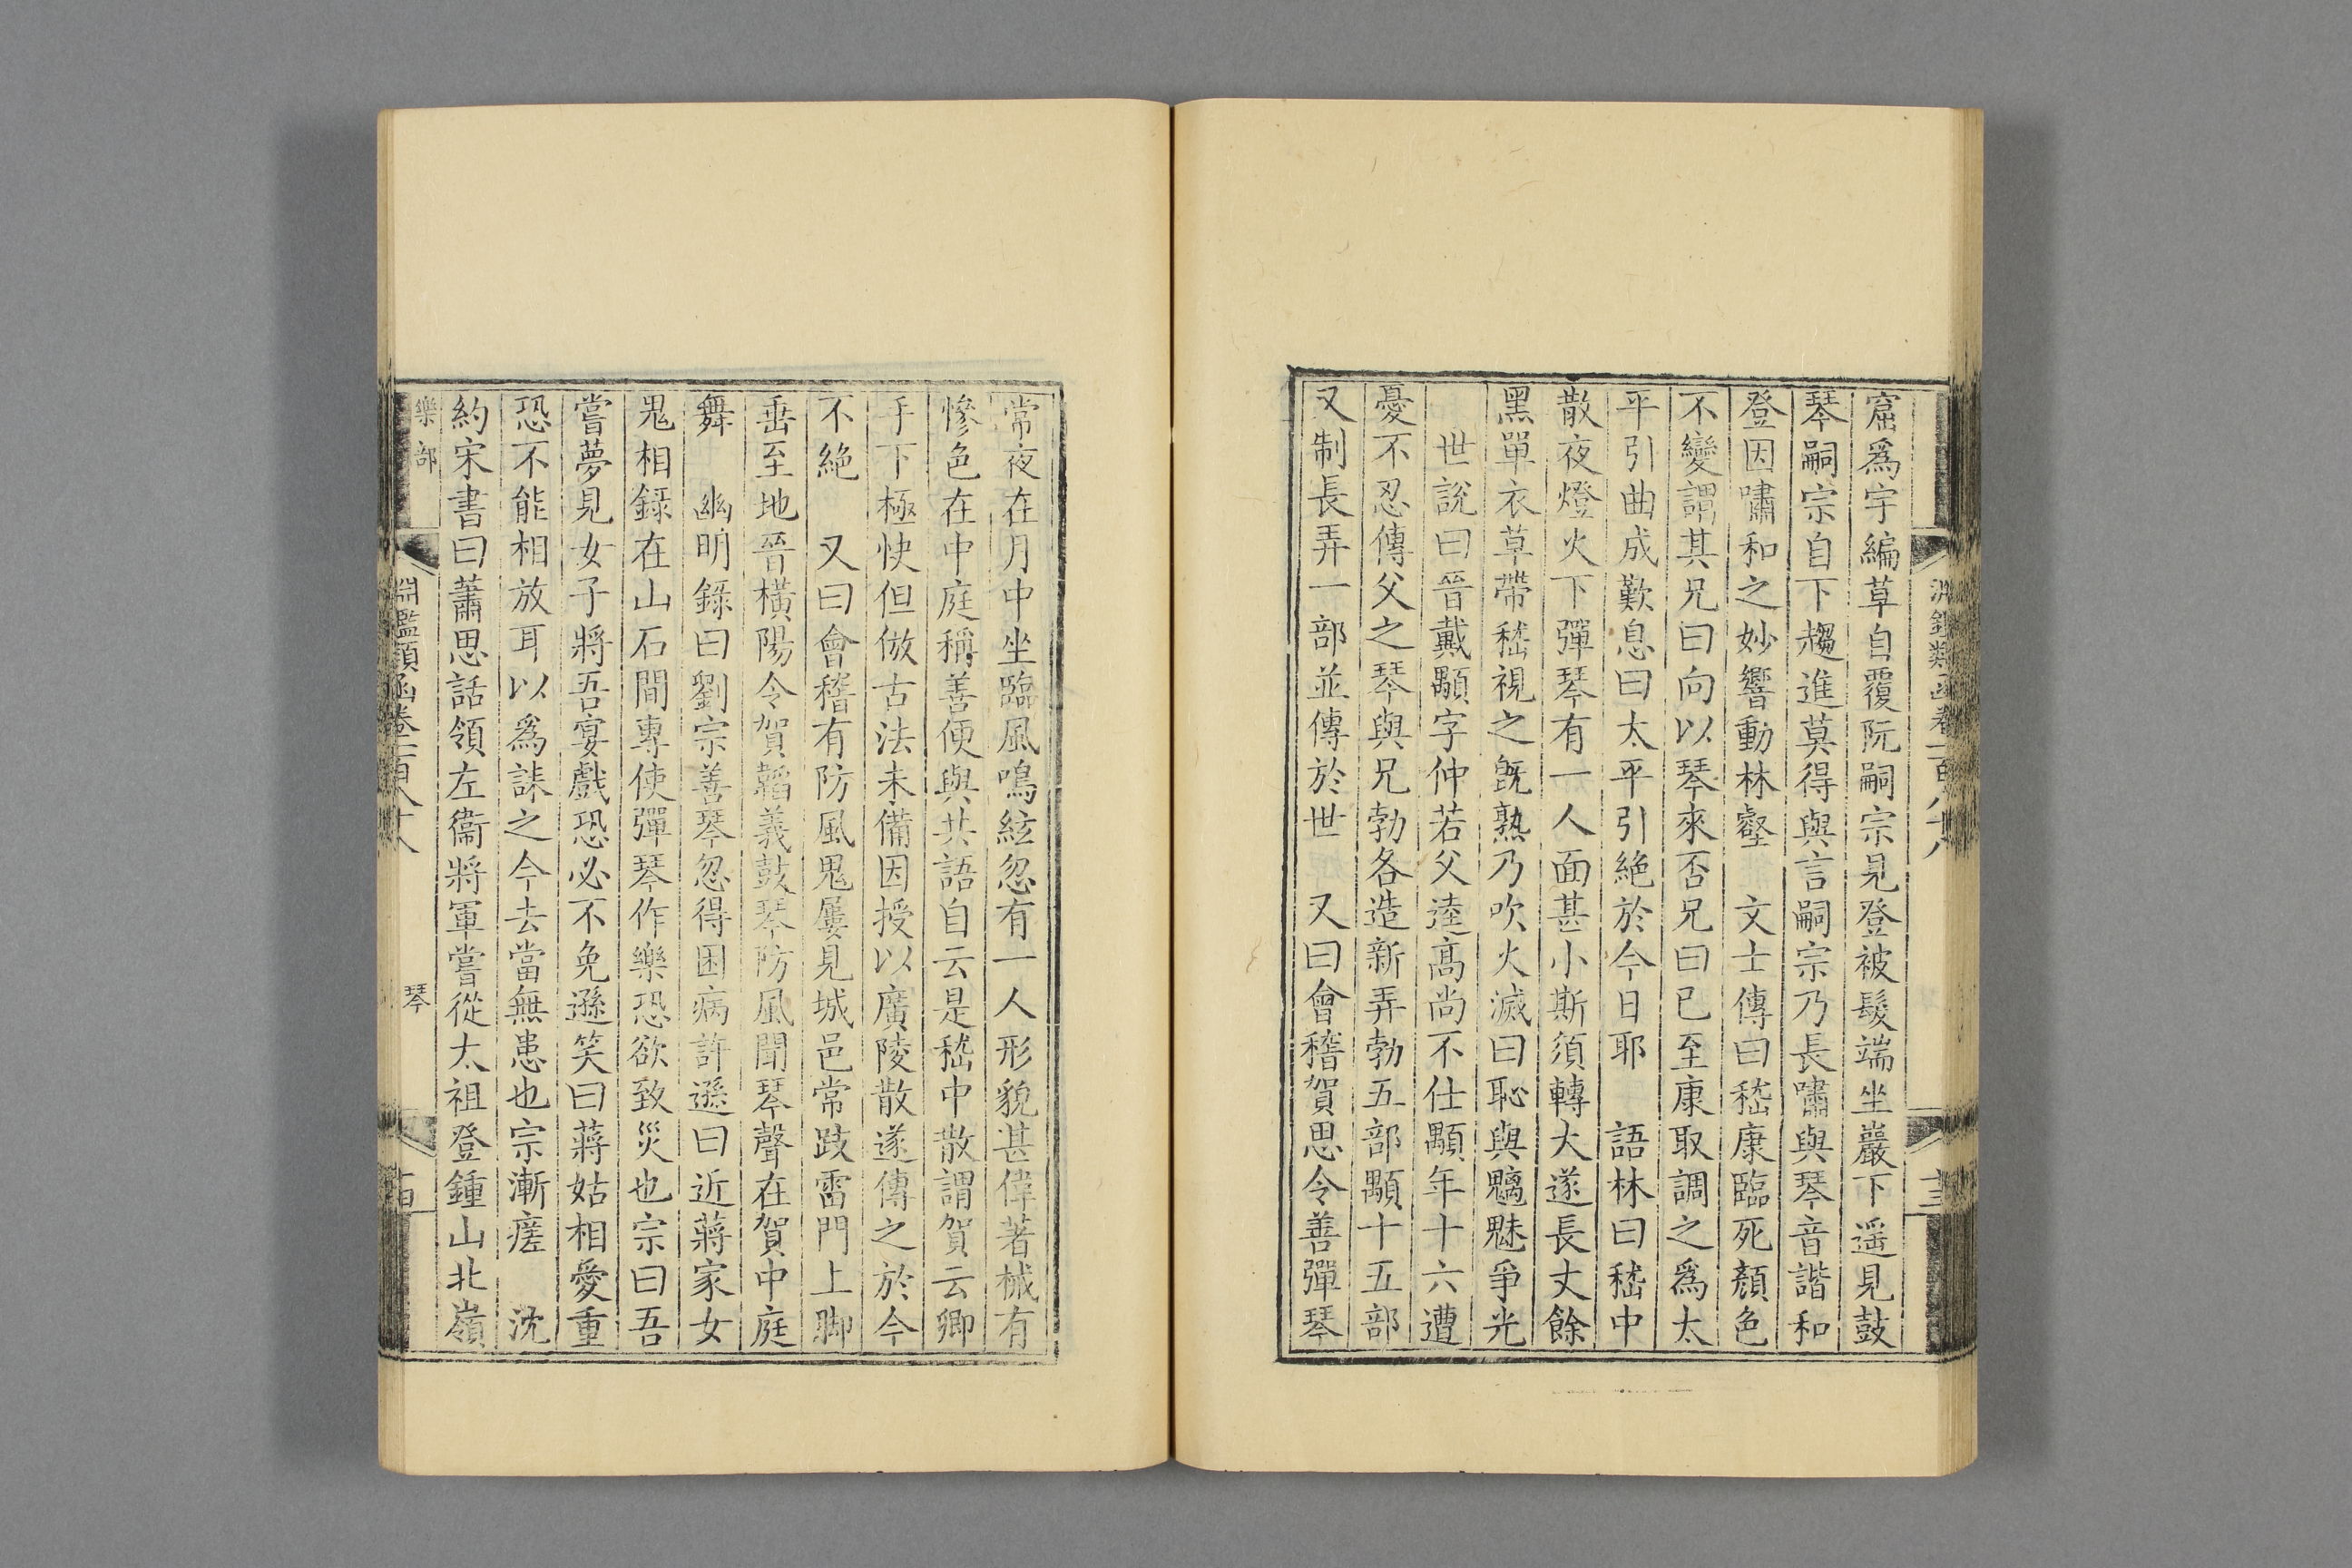 窟爲宇編草自覆阮嗣宗見登被髮端坐巖下遥見鼓
琴嗣宗自下趨進莫得與言嗣宗乃長嘯與琴音諧和
登因嘯和之妙響動林壑　文士傳曰嵇康臨死顏色
不變謂其兄曰向以琴來否兄曰已至康取調之爲太
平引曲成歎息曰太平引絶於今日耶　語林曰嵇中
散夜燈火下彈琴有一人面甚小斯須轉大遂長丈餘
黑單衣草帶嵇視之旣熟乃吹火滅曰恥與魑魅爭光
世說曰晉戴顒字仲若父逵高尚不仕顒年十六遭
憂不忍傳父之琴與兄勃各造新弄勃五部顒十五部
又制長弄一部並傳於世　又曰會稽賀思令善彈琴
常夜在月中坐臨風鳴絃忽有一人形貌甚偉著械有
慘色在中庭稱善便與共語自云是嵇中散謂賀云卿
手下極快但倣古法未備因授以廣陵散遂傳之於今
不絶　又曰會稽有防風鬼屢見城邑常跂雷門上脚
垂至地晉橫陽令賀韜義鼓琴防風聞琴聲在賀中庭
舞　幽明錄曰劉宗善琴忽得困病許遜曰近蔣家女
鬼相錄在山石間專使彈琴作樂恐欲致災也宗曰吾
嘗夢見女子將吾宴戲恐必不免遜笑曰蔣姑相愛重
恐不能相放耳以爲誄之今去當無患也宗漸瘥　沈
約宋書曰蕭思話領左衞將軍嘗從太祖登鍾山北嶺
樂部
淵鑑類函卷一百八十八
琴